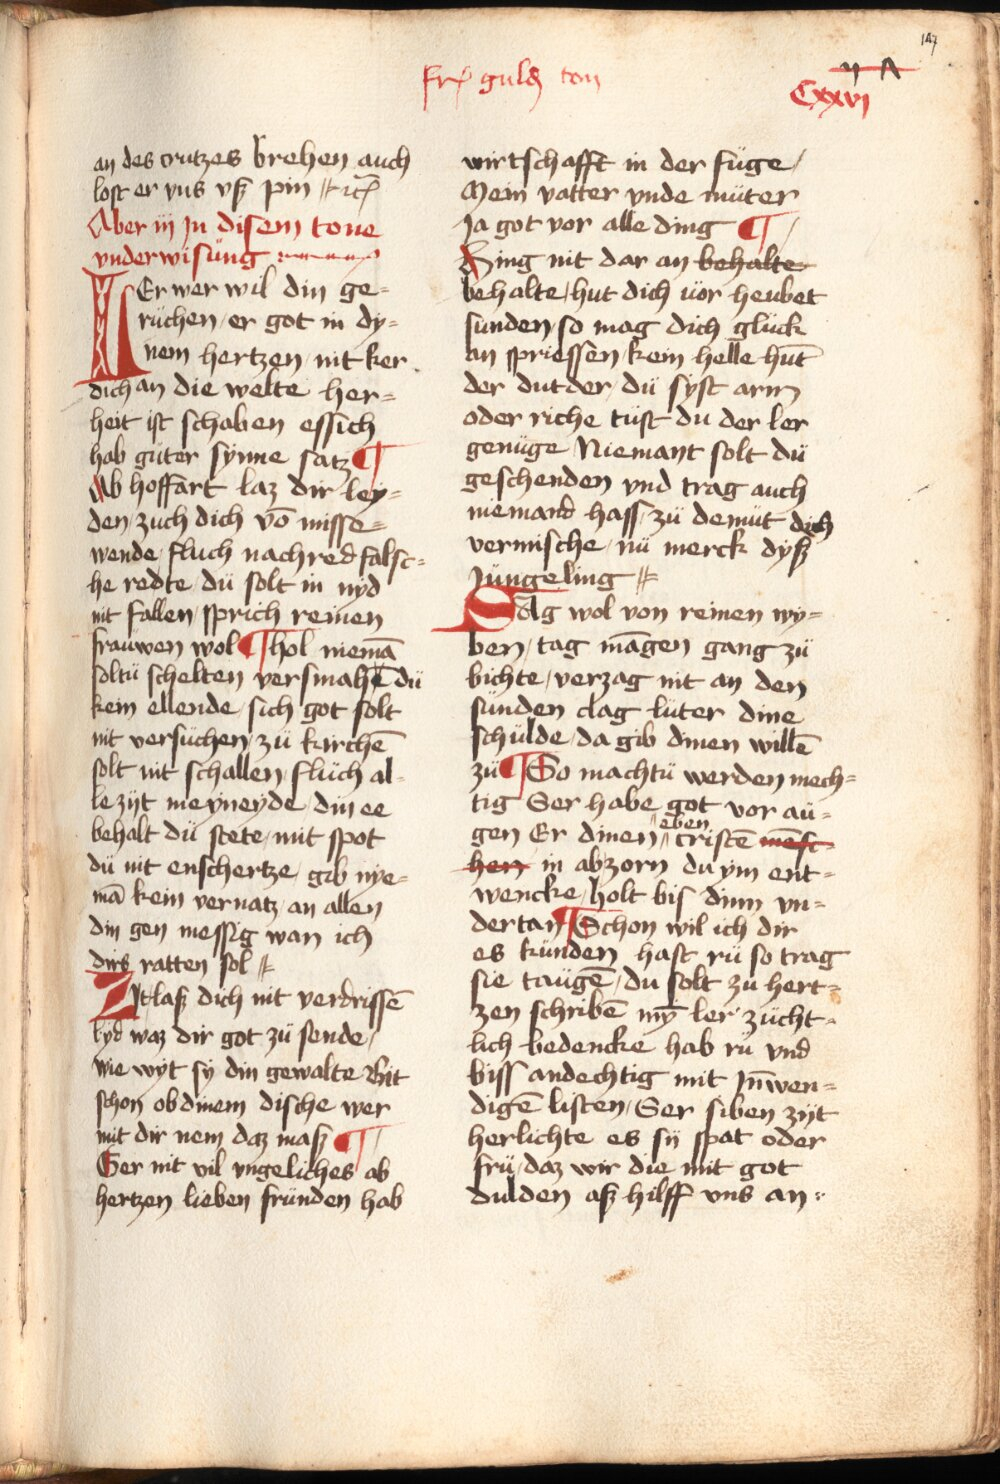 147
Frȩ guldē ton
CXXVI
an des crutzes brehen auch
lost er vns vß pin
Aber iij Jn disem tone
vnderwisüng
ER wer wil din ge=
rüchen / er got in dy=
nem hertzen / nit ker
dich an die welte her=
heit ist schaben essich
hab güter synne satz ¶
Ab hoffart laz dir ley=
den / zuch dich võ misse=
wende / fluch nachred falsc=
he redte dü solt in nyd
nit fallen / sprich reinen
frauwen wol ¶ hol niemã
soltü schelten versmahe dü
kein ellende / sich got solt
nit versüchen / zü kirchẽ
solt nit schallen / flüch al=
le zijt meyneyde / din ee
behalt dü stete / mit spot
dü nit enschertze / gib nye=
mã kein vernatz / an allen
din gen messig wan ich
dirs ratten sol
Zijt laß dich nit verdrissẽ
lyd waz dir got zü sende /
wie wyt sy din gewalte Bit
schon ob dinem dische wer
mit dir nem daz maß ¶
Ger nit vil vngeliches ab
hertzen lieben fründen hab
wirtschafft in der füge /
Mein vatter vnde müter
Ja got vor alle ding ¶
Ring nit dar an behalte
behalte / hut dich vor heubet
sunden / so mag dich glück
an spriessen / kein helle hut
der dutder / dü syst arm
oder riche tüst du der ler
genüge Niemant solt dü
geschenden vnd trag auch
niemand hass / zü demüt dich
vermische / nü merck dyß
Jüngeling
SAg wol von reinen wy=
ben / tag mãgen gang zü
bichte / verzag nit an den
sünden clag luter dine
schülde / da gib dinen willẽ
zü ¶ So machtü werden mech=
tig Ser habe got vor aü=
gen Er dinen eben cristẽ mẽsc=
hen in abzorn du ym ent=
wencke / holt bis dinn vn=
dertan ¶ Schon wil ich dir
es künden hast rü so trag
sie taugẽ / du solt zu hert=
zen schribẽ mỹ ler zücht=
lich bedencke hab rü vnd
biss andechtig mit Jnwen=
digẽ listen / Ser siben zijt
herlichte es sij spat oder
frü / daz wir die mit got
dulden aß hilff vns an